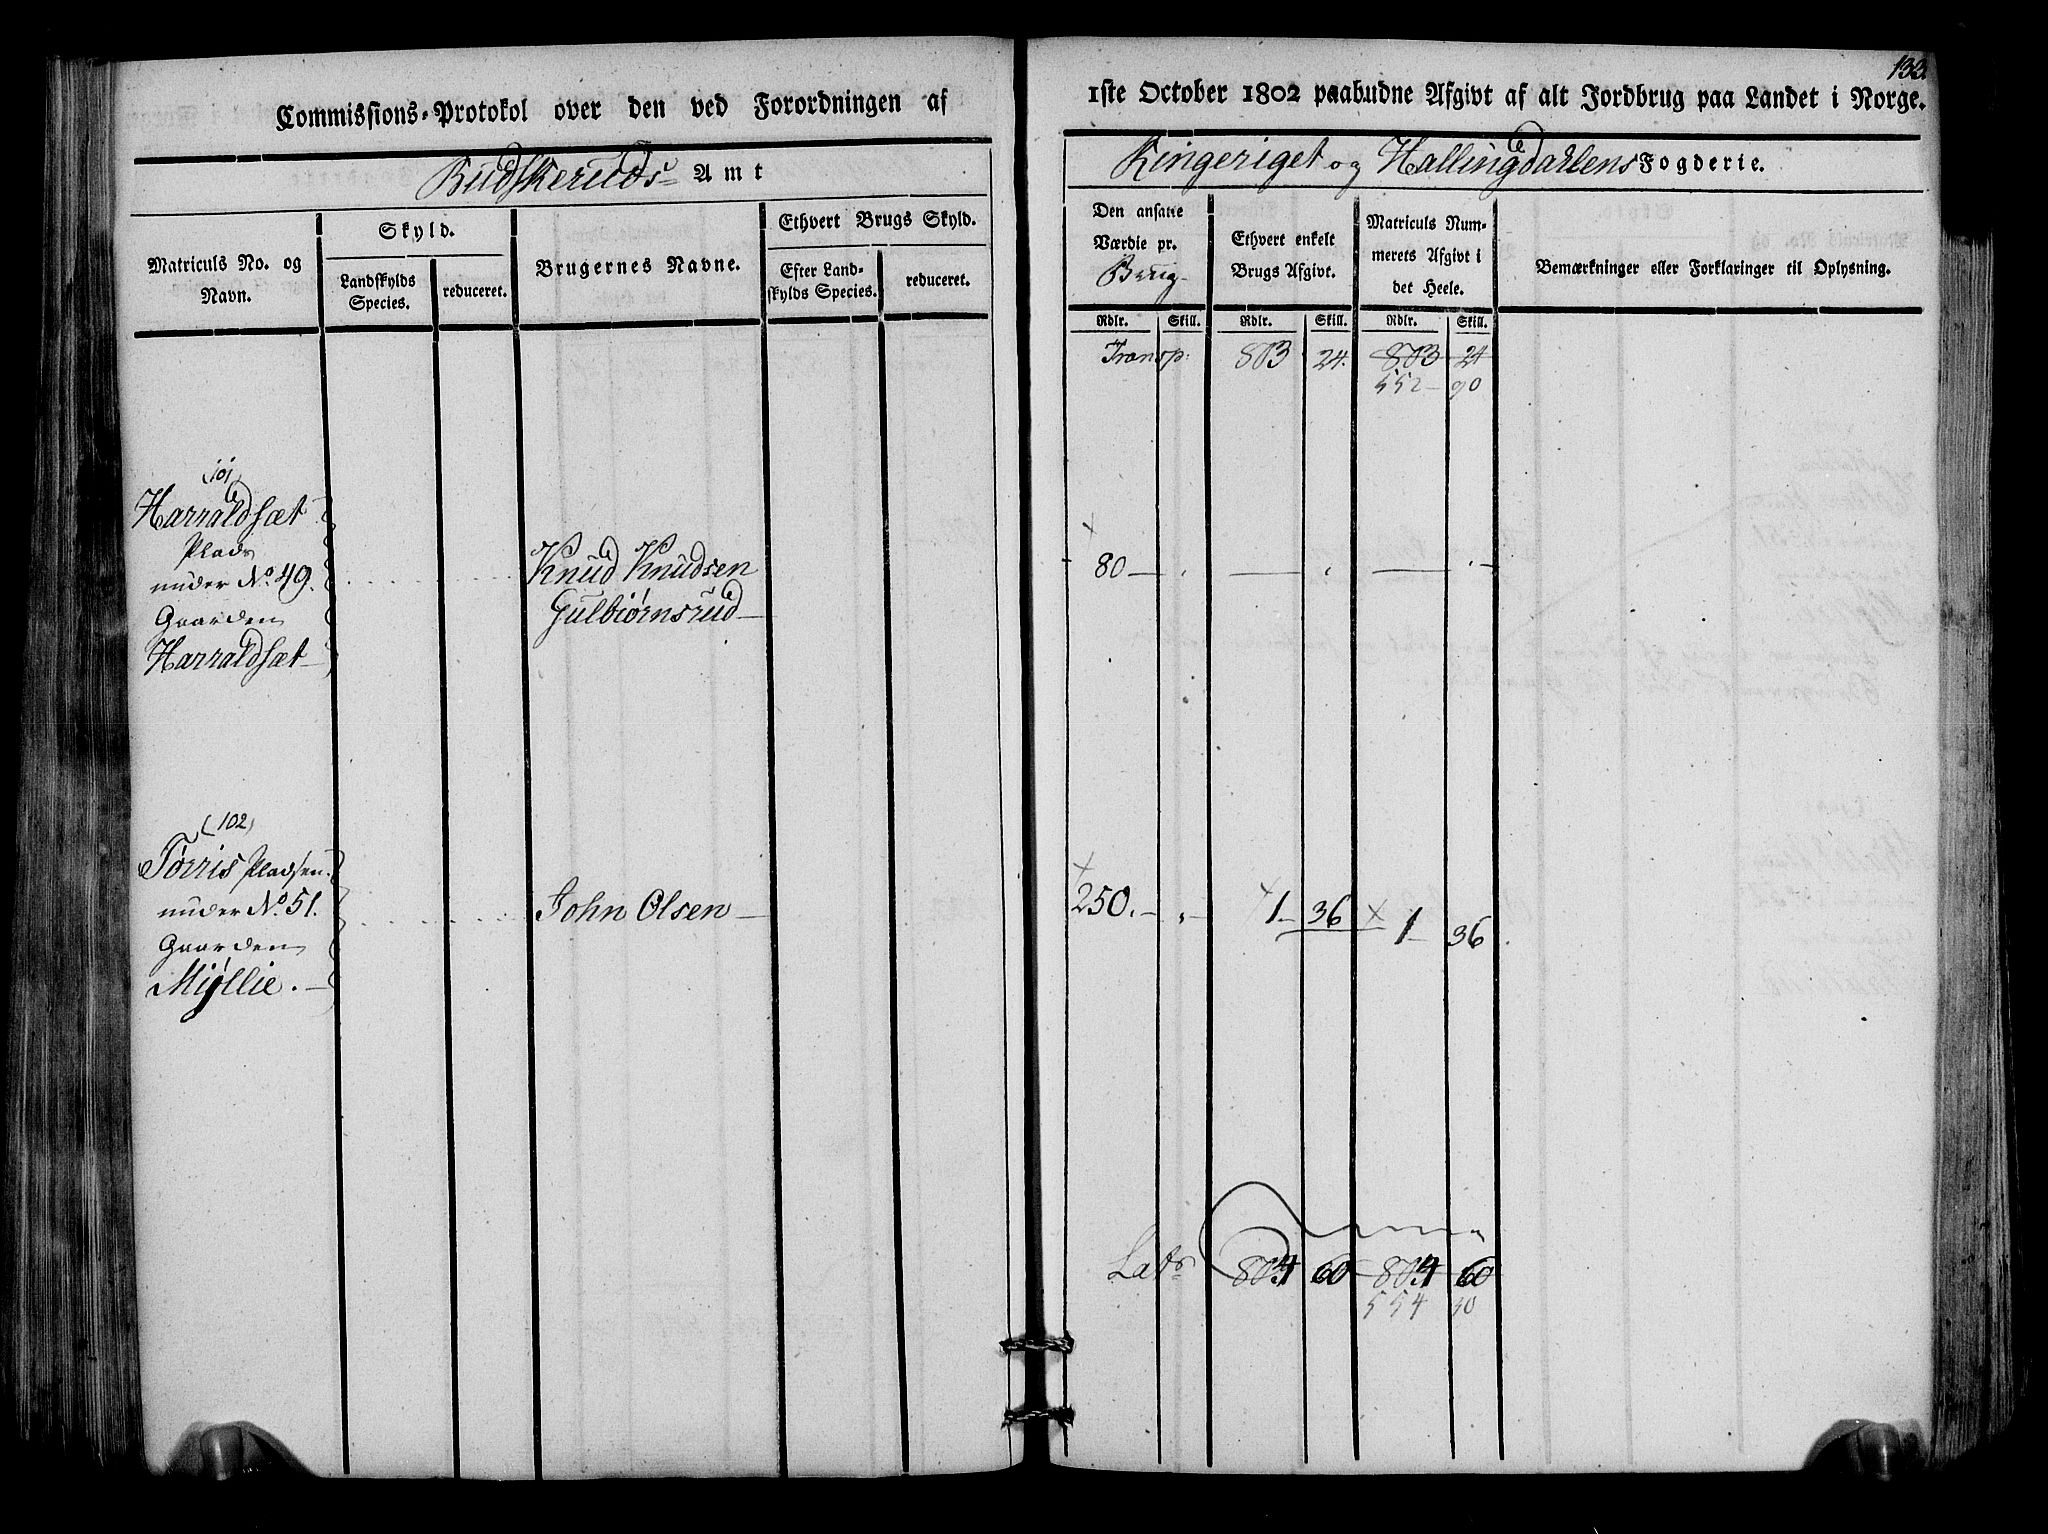 133.
Commissions-Protokol over den ved Forordningen af
1ste October 1802 paabudne Afgivt af alt Jordbrug paa Landet i Norge.
Budskeruds Amt
Ringeriget og Hallingdahlens Fogderie.
Matriculs No. og Navn.
Skyld.
Landskylds Species.
reduceret.
Brugernes Navne.
Ethvert Brugs Skyld.
Efter Landskylds Species.
reduceret.
Den ansatte Værdie pr. Brug
Ethvert enkelt Brugs Afgivt.
Matriculs Nummerets Afgivt i det Heele.
Bemærkninger eller Forklaringer til Oplysning.
Rdlr. Skill. Rdlr. Skill. Rdlr. Skill.
Transp: 803 24. 803 24
552 90
(101)
Harraldsæt
Plads
under No. 49.
Gaarden
Harraldsæt
Knud Knudsen
Gulbiørnsrud
80
(102)
Torris Pladsen
under No. 51.
Gaarden
Myllie.
John Olsen
250. 1 36 1 36
Lats 804 60 804 60
554 30